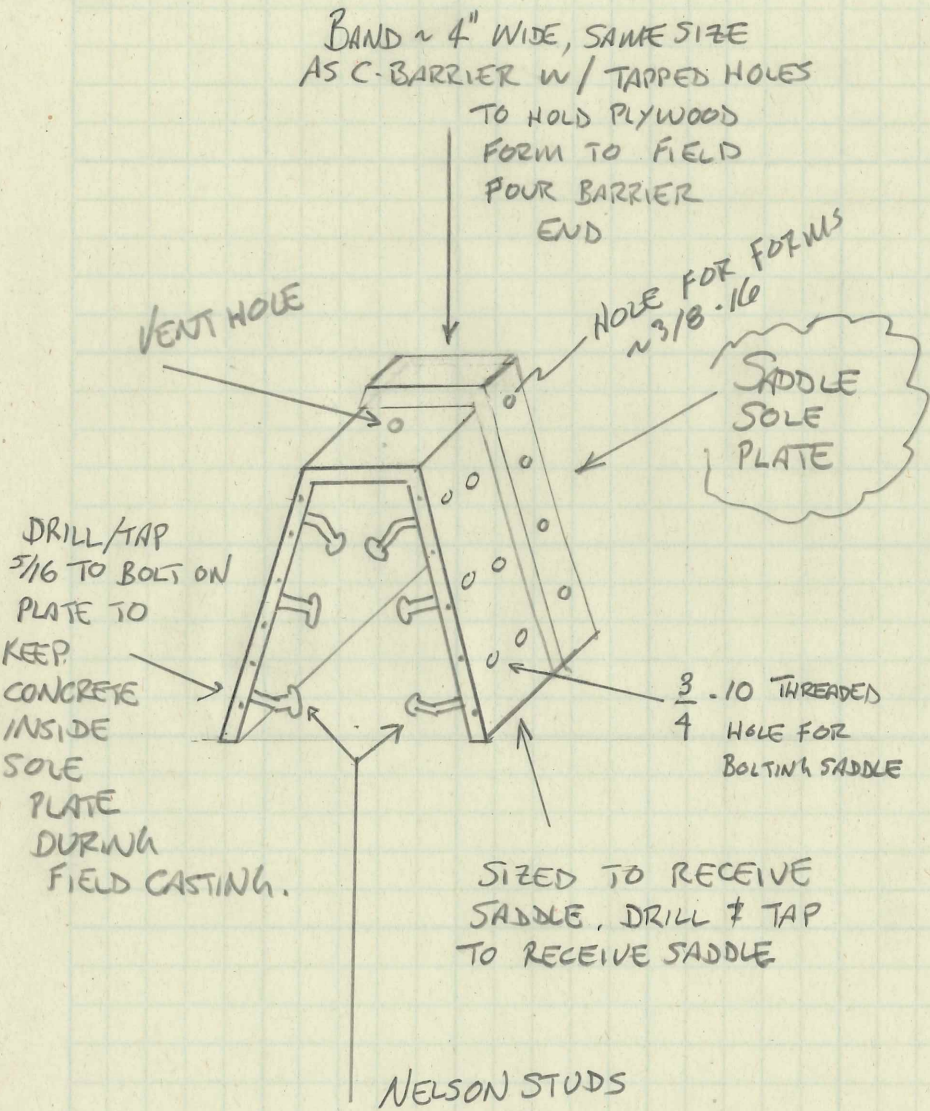 BAND ~ 4" WIDE, SAME SIZE
AS C-BARRIER W/ TAPPED HOLES
TO HOLD PLYWOOD
FORM TO FIELD
POUR BARRIER
END
HOLE FOR FORMS
~3/8-16
VENT HOLE
SADDLE
SOLE
PLATE
DRILL/TAP
5/16 TO BOLT ON
PLATE TO
KEEP
CONCRETE
INSIDE
SOLE
PLATE
DURING
FIELD CASTING.
3/4-10 THREADED
HOLE FOR
BOLTING SADDLE
SIZED TO RECEIVE
SADDLE. DRILL & TAP
TO RECEIVE SADDLE
NELSON STUDS